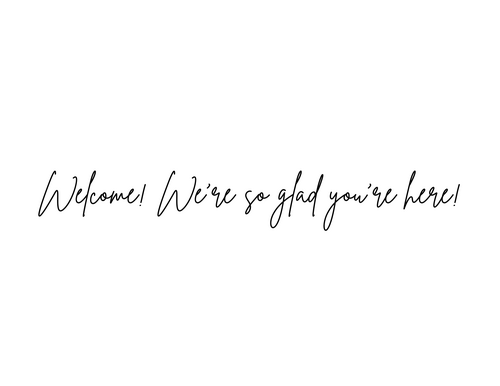 Welcome! We're so glad you're here!